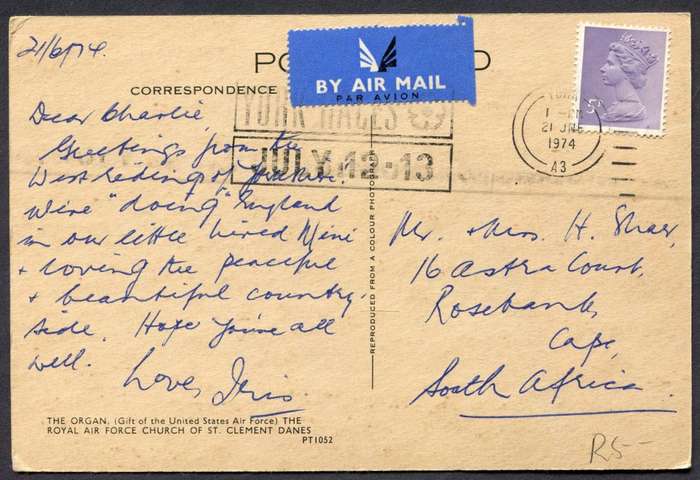 21/6/74.
PO D
CORRESPONDENCE
BY AIR MAIL
PAR AVION
YORK RACES
JULY 12-13
YORK
21 JNE
1974
A3
Dear Charlie,
Greetings from the
West Reding of Yorkshire.
We're "doing" England
in our little hired Mini
+ loving the peaceful
+ beautiful country-
side. Hope you're all
well.
Love, Iris
REPRODUCED FROM A COLOUR PHOTOGRAPH
Mr. + Mrs. H.
16 Astra Court,
Rosebank,
Cape,
South Africa.
THE ORGAN. (Gift of the United States Air Force) THE
ROYAL AIR FORCE CHURCH OF ST. CLEMENT DANES
PT1052
R5-